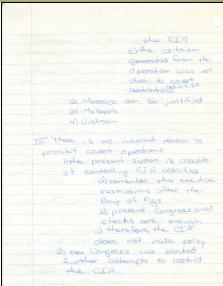 the CIA
c) the criticism
generated from the
operation was not
due to covert
activities
2) Morocco can be justified
3) Malaysia
4) Vietnam
There is no inherent reason to
prohibit covert operations
1) the present system is capable
of controlling CIA activities
a) remember the executive
restrictions after the
Bay of Pigs
b) present Congressional
checks are enough
c) therefore the CIA
does not make policy
2) Congress has blocked
further attempts to restrict
the CIA.